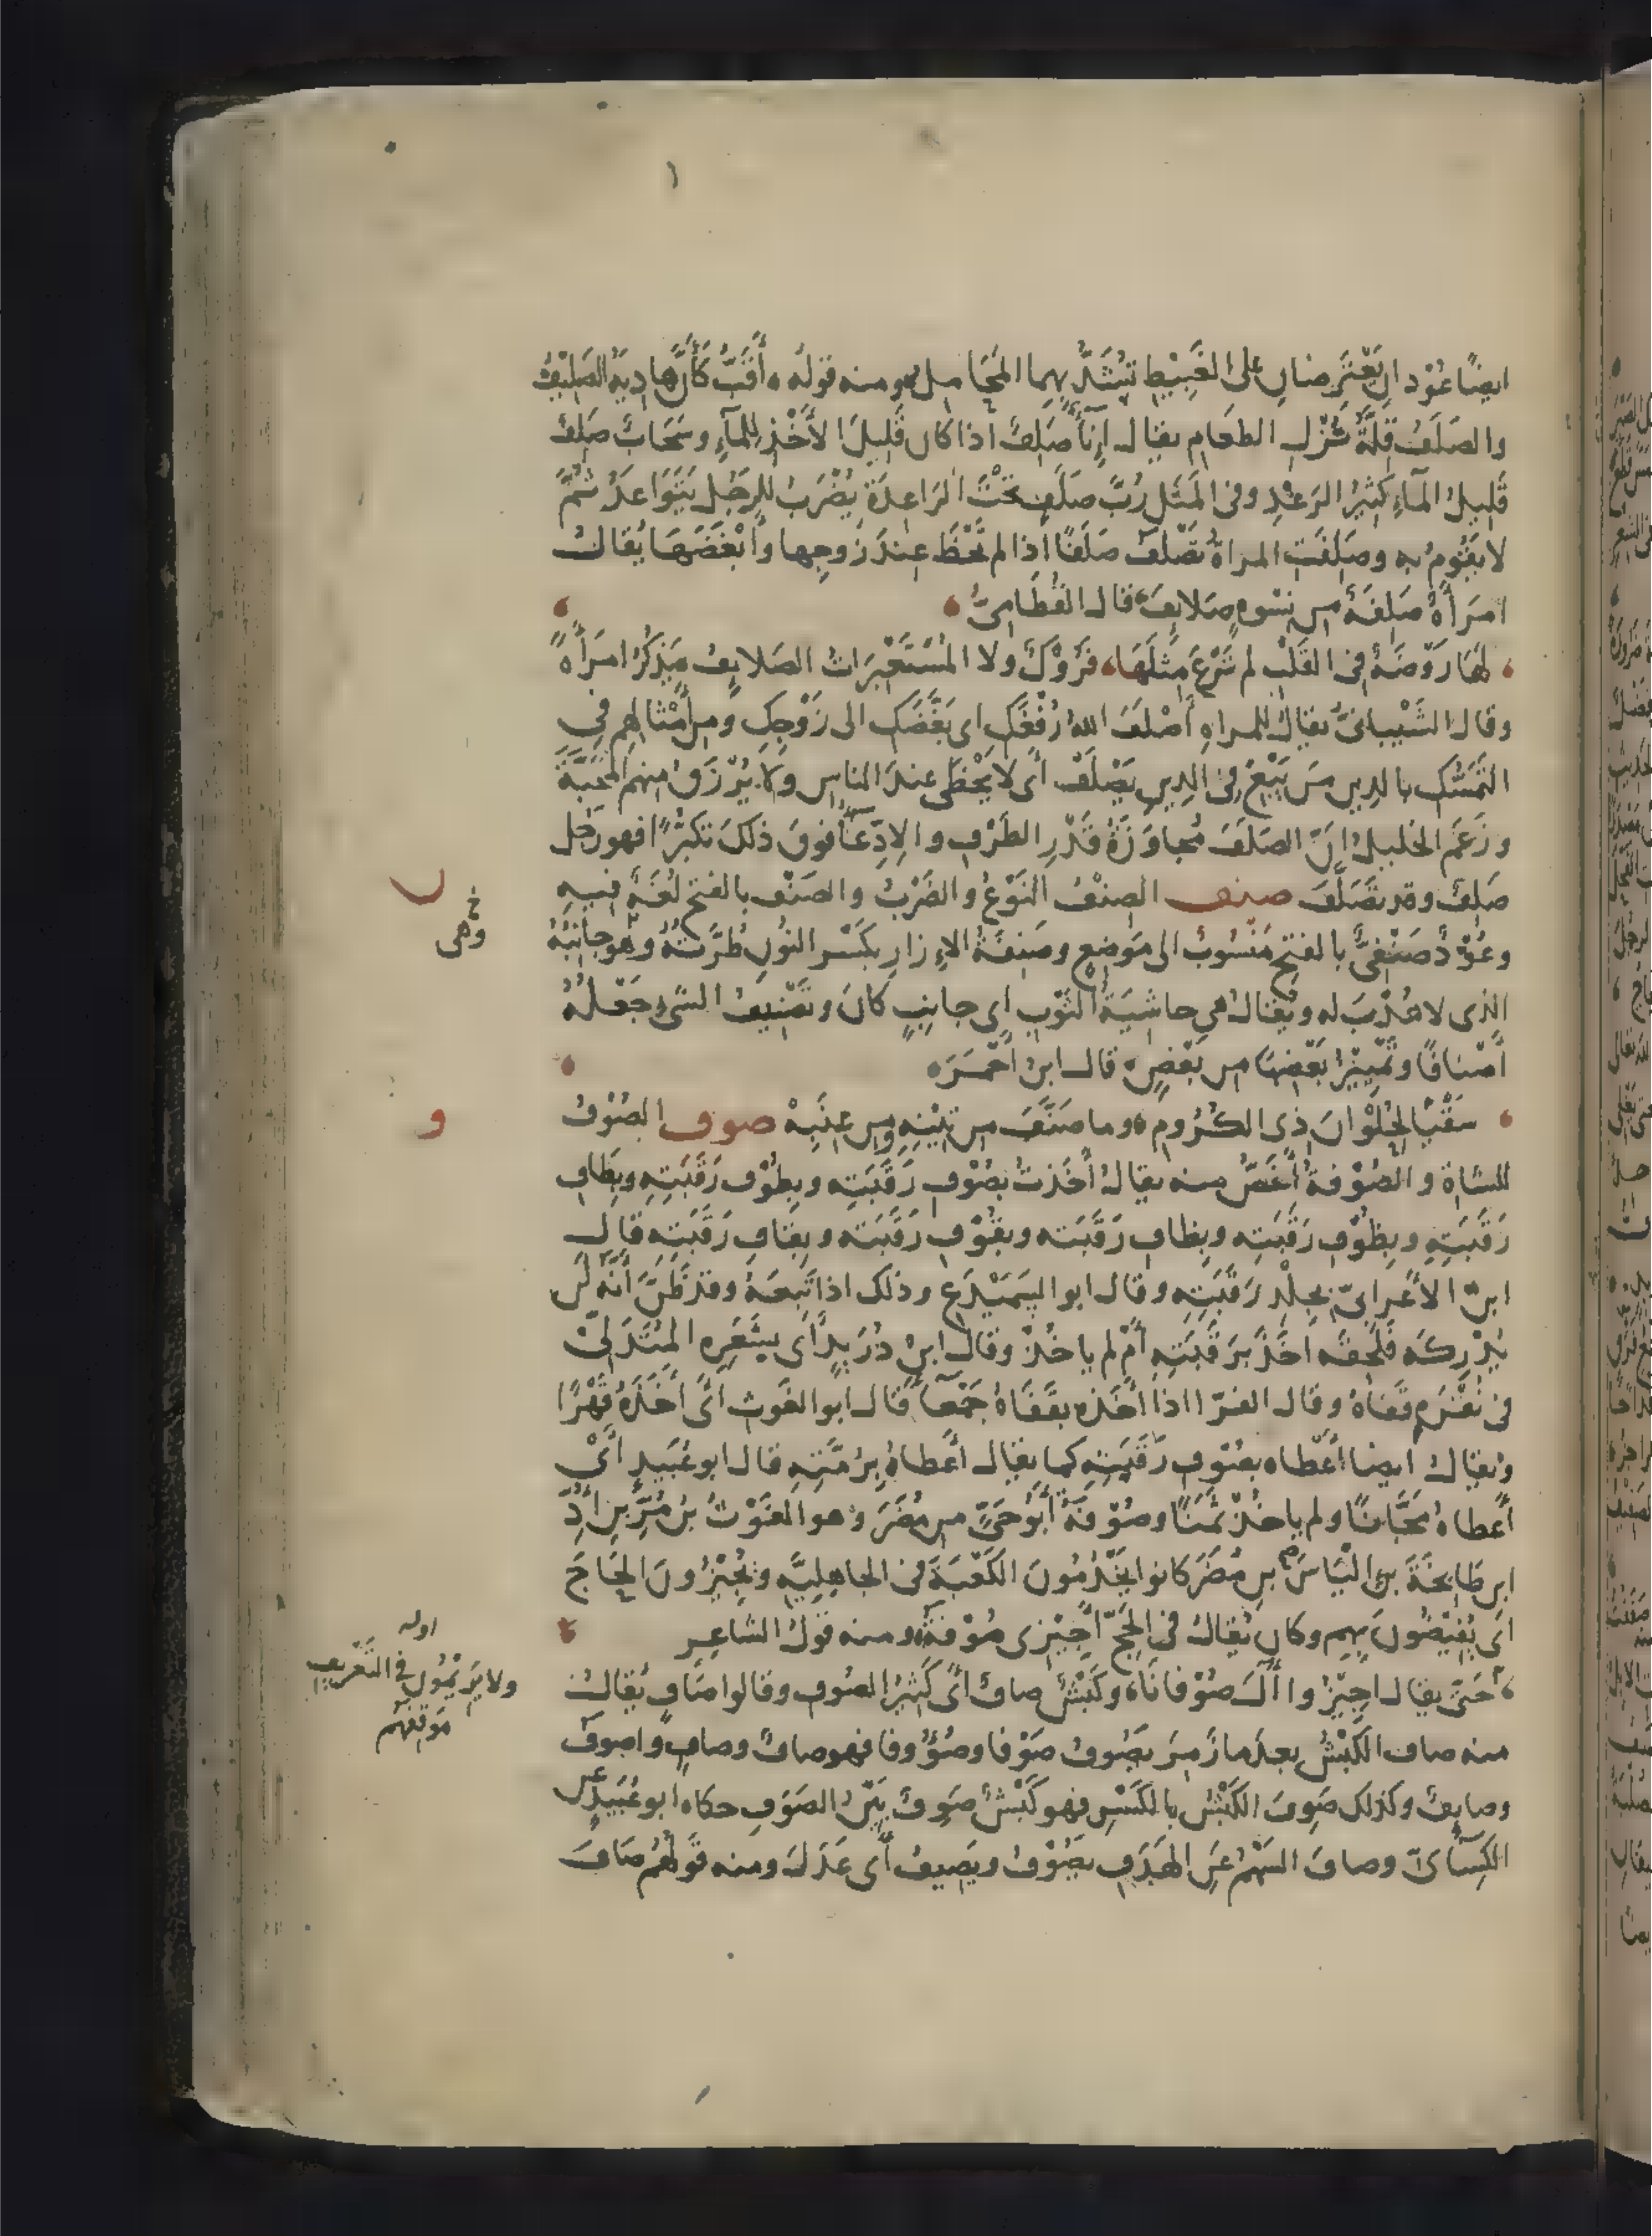 ايضًا عُوْدانِ يَعْتَرِضانِ على الغَبِيْطِ تُشَدُّ بهما المَحَامِل ومنه قوله أَقَبُّ كَأَنَّ هادِيَهُ الصَلِيْفُ
والصَلَفُ قِلَّةُ نُزْلِ الطعَامِ يقال إنآءٌ صَلِفٌ اذا كان قَلِيلَ الأَخْذِ لِلمآءِ وسَحَابٌ صَلِفٌ
قَلِيلُ المآءِ كَثِيرُ الرَعْدِ وفى المَثَل رُبَّ صَلَفٍ تَحْتَ الرَاعِدَةِ يُضْرَبُ للرجُلِ يَتَوَاعَدُ ثُمَّ
لا يَقُومُ به وصَلِفَتِ المراةُ تَصْلَفُ صَلَفًا اذا لم تَحْظَ عِندَ زَوجِها وأَبْغَضَهَا يُقالُ
امرَأَةٌ صَلِفَةٌ من نِسْوةٍ صَلايِفَ قال القُطَامِىُّ
لَهَا رَوْضَةٌ فى القَلْبِ لم تَرْعَ مِثْلَهَا فَرُوْكٌ ولا المُسْتَعْبِرَاتُ الصَلايِفُ يَذكُرُ امرَأَةً
وقال الشَيْبانىُّ يقالُ للمراةِ أَصْلَفَ اللهُ رُفْغَكِ اى بَغَّضَكِ الى زَوْجِكِ ومن أَمْثالِهم فى
التَمَسُّكِ بالدِينِ مَن يَبْغِ فى الدِينِ يَصْلَفْ أى لا يَحْظَى عندَ الناسِ ولا يُرْزَقُ منهم المَحَبَّةَ
وزَعَمَ الخليلُ انَّ الصَلَفَ مُجاوَزَةُ قَدْرِ الظَرْفِ والإدِّعآءُ فوقَ ذلكَ تكبُّرًا فهو رَجُل
صَلِفٌ وقد تَصَلَّفَ صنف الصِنْفُ النَوْعُ والضَرْبُ والصَنْفُ بالفتح لُغَةٌ فيه
وعُوْدٌ صَنْفِىٌّ بالفتحِ مَنْسُوبٌ الى مَوضِعٍ وصَنِفَةُ الإزارِ بكَسْرِ النُونِ طُرَّتُهُ وهو جانِبُهُ
خ وهى
الذى لا هُدْبَ له ويُقالُ هى حاشِيَةُ الثَوْبِ اىِ جانِبٍ كانَ وتَصْنِيفُ الشىءِ جَعْلُهُ
أَصْنافًا وتَمْيِيْزُ بَعْضِهَا من بَعْضٍ قال ابنُ أَحْمَرَ
سَقْيًا لِحُلْوانَ ذى الكُرُومِ وما صَنَّفَ من تِيْنِهِ ومن عِنَبِهْ صوف الصُوْفُ
للشاةِ والصُوْفَةُ أَخَصُّ منه يقالُ أَخَذتُ بصُوْفِ رَقَبَتِه وبطُوْفِ رَقَبَتِهِ وبطَافِ
رَقَبَتِهِ وبظُوْفِ رَقَبَتِه وبظافِ رَقَبَتِه وبقُوْفِ رَقَبَتِه وبقافِ رَقَبَتِهِ قال
ابنُ الأعرابىّ بجِلْدِ رَقَبَتِهِ وقال ابو السَمَيْدَعِ وذلك اذا تَبِعَهُ وقد ظَنَّ أَنَّه لن
يُدْرِكَه فَلَحِقَه اخَذَ بِرَقَبَتِهِ أَمْ لم ياخُذْ وقال ابنُ دُرَيدٍ أى بِشَعَرِهِ المُتَدَلّى
فى نُقْرَةِ قَفَاهُ وقال الفَرّا اذا أَخَذَه بقَفَاهُ جَمْعآءَ قال ابو الغَوثِ أَىْ أَخَذَهُ قَهْرًا
ويُقالُ ايضا أَعْطاه بصُوْفِ رَقَبَتِهِ كما يقال أَعطاهُ بِرُمَّتِهِ قال ابو عُبَيدٍ أَىْ
أَعطاهُ مَجَّانًا ولم ياخُذْ ثَمَنًا وصُوْفَةُ أَبُو حَىٍّ من مُضَرَ وهو الغَوْثُ بنُ مُرِّ بنِ ادِّ
ابنِ طابخَةَ بنِ الْيَاسَ بنِ مُضَرَ كانوا يَخْدُمُونَ الكَعْبَةَ فى الجاهِلِيَّةِ ويُجِيْزُونَ الحَاجَّ
اى يُفِيْضُونَ بهم وكان يُقالُ فى الحَجِّ أَجِيْزِى صُوْفَةُ ومنه قَولُ الشاعِرِ
اوله
ولا يَرِيْمُونَ فى التَعْرِيفِ
مَوْقِفَهُم
حَتّى يقال اجِيْزُوا أَلَ صُوْفانَا وكَبْشٌ صافٌ اىْ كَثِيرُ الصُوفِ وقالوا صَافٍ يُقالُ
منه صاف الكَبْشُ بعدَما زَمِرَ يَصُوفُ صَوْفا وصُؤُوفا فهو صافٌ وصافٍ واصوفُ
وصايِفٌ وكذلك صَوِفَ الكَبْشُ بالكَسْرِ فهو كَبْشٌ صَوِفٌ بَيِّنُ الصَوَفِ حكاه ابو عُبَيدٍ عن
الكِسَآئىّ وصافَ السَهْمُ عَنِ الهَدَفِ يَصُوْفُ ويَصِيفُ أَى عَدَلَ ومنه قَوْلُهُم صَافَ